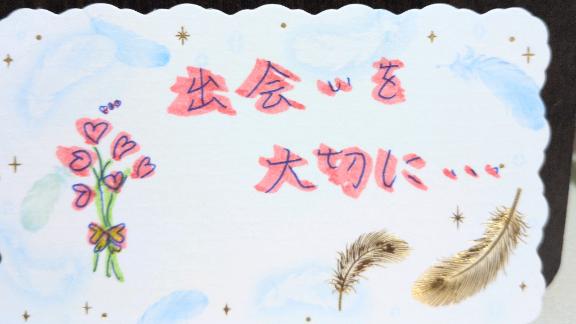 出会いを
大切に…